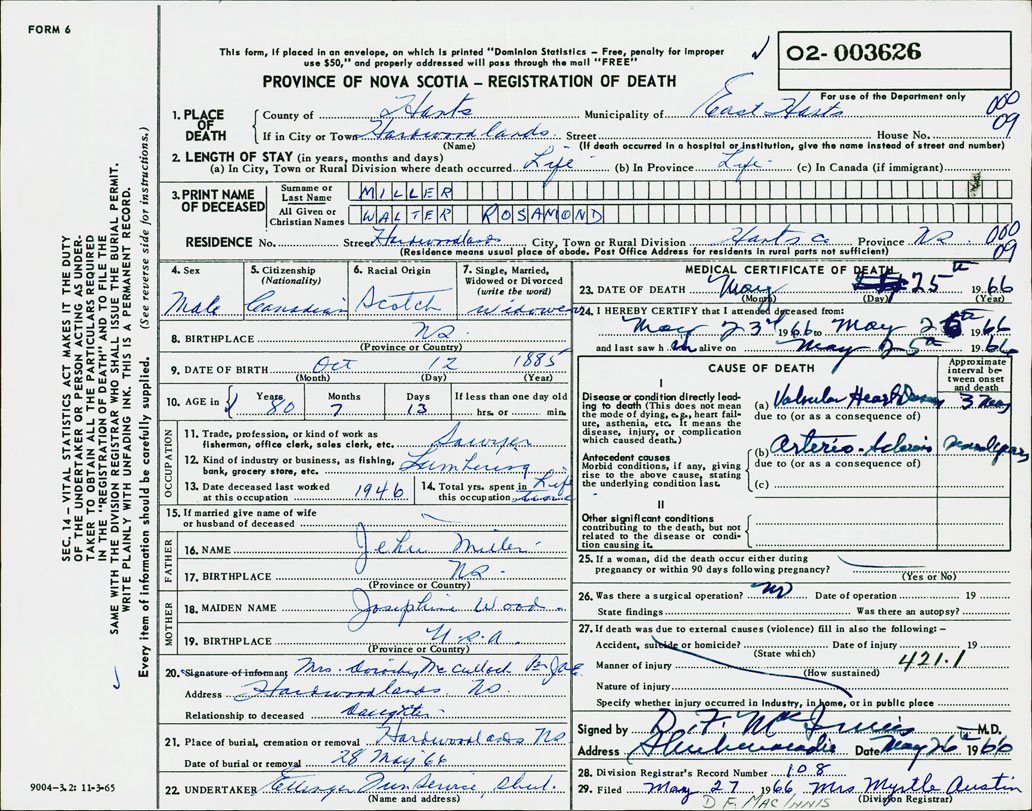 FORM 6
This form, if placed in an envelope, on which is printed "Dominion Statistics – Free, penalty for improper
use $50," and properly addressed will pass through the mail "FREE"
O2-003626
PROVINCE OF NOVA SCOTIA – REGISTRATION OF DEATH
For use of the Department only
000
09
1. PLACE OF DEATH
County of Hants Municipality of East Hants
If in City or Town Hardwoodlands Street House No.
(Name) (If death occurred in a hospital or institution, give the name instead of street and number)
2. LENGTH OF STAY (in years, months and days)
(a) In City, Town or Rural Division where death occurred Life (b) In Province Life (c) In Canada (if immigrant)
3. PRINT NAME OF DECEASED
Surname or Last Name MILLER
All Given or Christian Names WALTER ROSAMOND
RESIDENCE No. Street Hardwoodlands City, Town or Rural Division Hants Co Province NS. 000
(Residence means usual place of abode. Post Office Address for residents in rural parts not sufficient) 09
4. Sex Male
5. Citizenship (Nationality) Canadian
6. Racial Origin Scotch
7. Single, Married, Widowed or Divorced (write the word) Widowed
8. BIRTHPLACE NS.
(Province or Country)
9. DATE OF BIRTH Oct 12 1885
(Month) (Day) (Year)
10. AGE in Years 80 Months 7 Days 13 If less than one day old hrs. or min.
OCCUPATION
11. Trade, profession, or kind of work as fisherman, office clerk, sales clerk, etc. Sawyer
12. Kind of industry or business, as fishing, bank, grocery store, etc. Lumbering
13. Date deceased last worked at this occupation 1946
14. Total yrs. spent in this occupation Life time
15. If married give name of wife or husband of deceased
FATHER
16. NAME Jehu Miller
17. BIRTHPLACE NS.
(Province or Country)
MOTHER
18. MAIDEN NAME Josephine Wood
19. BIRTHPLACE U.S.A.
(Province or Country)
20. Signature of informant Mrs. Dorothy McCulloch Per
Address Hardwoodlands NS.
Relationship to deceased Daughter
21. Place of burial, cremation or removal Hardwoodlands NS
Date of burial or removal 28 May '66
22. UNDERTAKER Ettinger Fun Service, Shub.
(Name and address)
MEDICAL CERTIFICATE OF DEATH
23. DATE OF DEATH May 25th 1966
(Month) (Day) (Year)
24. I HEREBY CERTIFY that I attended deceased from:
May 23rd 1966 to May 25th 1966
and last saw h im alive on May 25th 1966
CAUSE OF DEATH
Approximate interval between onset and death
I
Disease or condition directly leading to death (This does not mean the mode of dying, e.g., heart failure, asthenia, etc. It means the disease, injury, or complication which caused death.)
(a) Valvular Heart Disease 3
due to (or as a consequence of)
Antecedent causes
Morbid conditions, if any, giving rise to the above cause, stating the underlying condition last.
(b) Arterio-Sclerosis several years
due to (or as a consequence of)
(c)
II
Other significant conditions
contributing to the death, but not related to the disease or condition causing it.
25. If a woman, did the death occur either during pregnancy or within 90 days following pregnancy?
(Yes or No)
26. Was there a surgical operation? No Date of operation 19
State findings Was there an autopsy?
27. If death was due to external causes (violence) fill in also the following:–
Accident, suicide or homicide? Date of injury 19
(State which) 421.1
Manner of injury
(How sustained)
Nature of injury
Specify whether injury occurred in Industry, in home, or in public place
Signed by D. F. MacInnis M.D.
Address Shubenacadie Date May 26th 1966
28. Division Registrar's Record Number 108
29. Filed May 27 1966 Mrs Myrtle Austin
(Division Registrar)
D F. MACINNIS
SEC. 14 – VITAL STATISTICS ACT MAKES IT THE DUTY
OF THE UNDERTAKER OR PERSON ACTING AS UNDER-
TAKER TO OBTAIN ALL THE PARTICULARS REQUIRED
IN THE "REGISTRATION OF DEATH" AND TO FILE THE
SAME WITH THE DIVISION REGISTRAR WHO SHALL ISSUE THE BURIAL PERMIT.
WRITE PLAINLY WITH UNFADING INK. THIS IS A PERMANENT RECORD.
Every item of information should be carefully supplied. (See reverse side for instructions.)
9004-3.2: 11-3-65